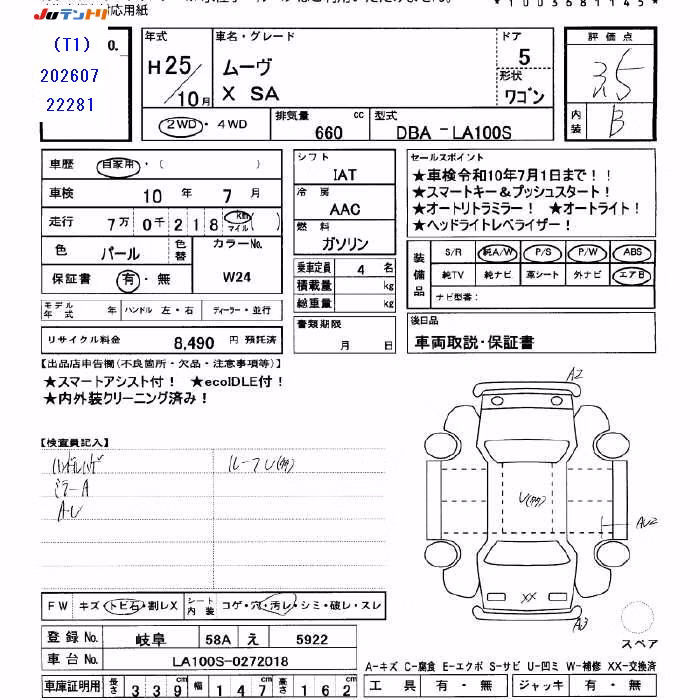 応用紙
JUテントリ
*1003681145*
(T1)
O.
202607
22281
年式
H25/10月
車名・グレード
ムーヴ
X SA
ドア
5
形状
ワゴン
評価点
3.5
内装
B
2WD・4WD
排気量
660 cc
型式
DBA-LA100S
車歴 自家用・( )
車検 10年 7月
走行 7万0千218 km マイル( )
色 パール
色替
カラーNo.
W24
保証書 有・無
モデル年式 年
ハンドル 左・右
ディーラー・並行
リサイクル料金 8,490 円 預託済
シフト
IAT
冷房
AAC
燃料
ガソリン
乗車定員 4 名
積載量 kg
総重量 kg
書類期限
月 日
セールスポイント
★車検令和10年7月1日まで!!
★スマートキー&プッシュスタート!
★オートリトラミラー! ★オートライト!
★ヘッドライトレベライザー!
装備品
S/R 純A/W P/S P/W ABS
純TV 純ナビ 革シート 外ナビ エアB
ナビ型番:
後日品
車両取説・保証書
【出品店申告欄(不良箇所・欠品・注意事項等)】
★スマートアシスト付! ★ecoIDLE付!
★内外装クリーニング済み!
【検査員記入】
ミラーA
A・U
ルーフU
A2
U
AU2
XX
A3
スペア
FW キズ・トビ石・割レX
シート内装 コゲ・穴・汚レ・シミ・破レ・スレ
登録No. 岐阜 58A え 5922
車台No. LA100S-0272018
車庫証明用 長さ 339 幅 147 高さ 162
A-キズ C-腐食 E-エクボ S-サビ U-凹ミ W-補修 XX-交換済
工具 有・無 ジャッキ 有・無